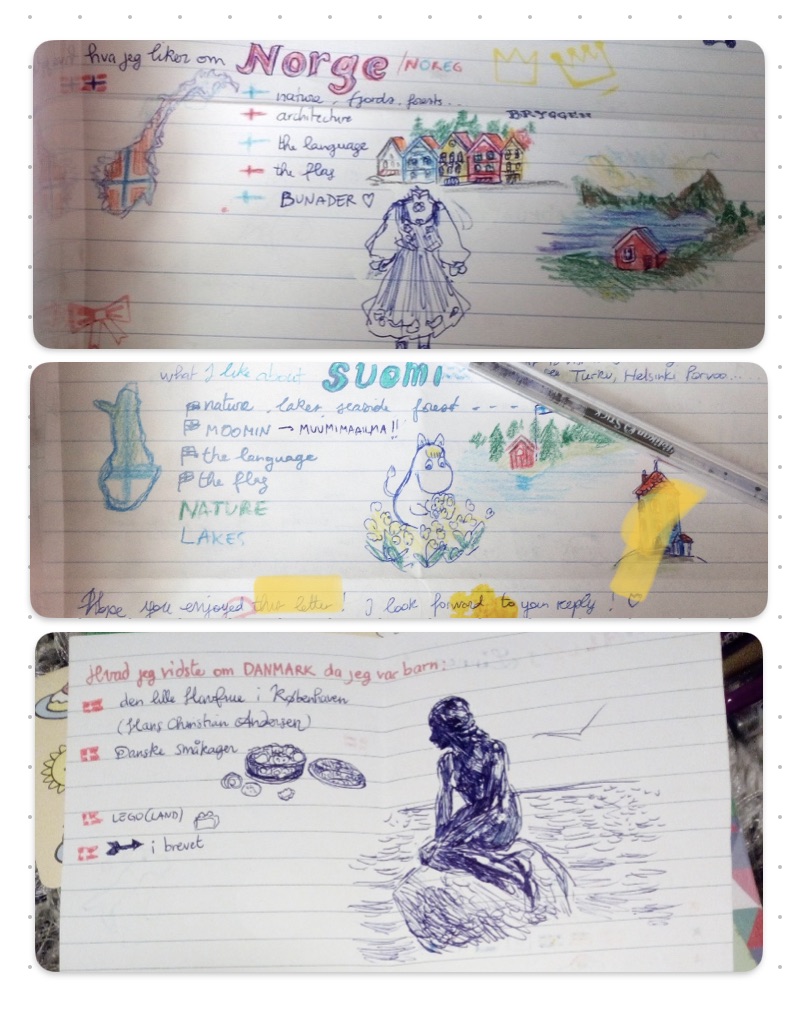 hva jeg liker om Norge /NOREG
nature, fjords, forests...
architecture
BRYGGEN
the language
the flag
BUNADER ♡
what I like about SUOMI
Turku, Helsinki Porvoo...
nature, lakes, seaside forest - - - -
MOOMIN → MUUMIMAAILMA!!
the language
the flag
NATURE
LAKES
Hope you enjoyed this letter! I look forward to your reply! ♡
Hvad jeg vidste om DANMARK da jeg var barn:
den lille Havfrue i København
(Hans Christian Andersen)
Danske småkager
LEGO(LAND)
i brevet